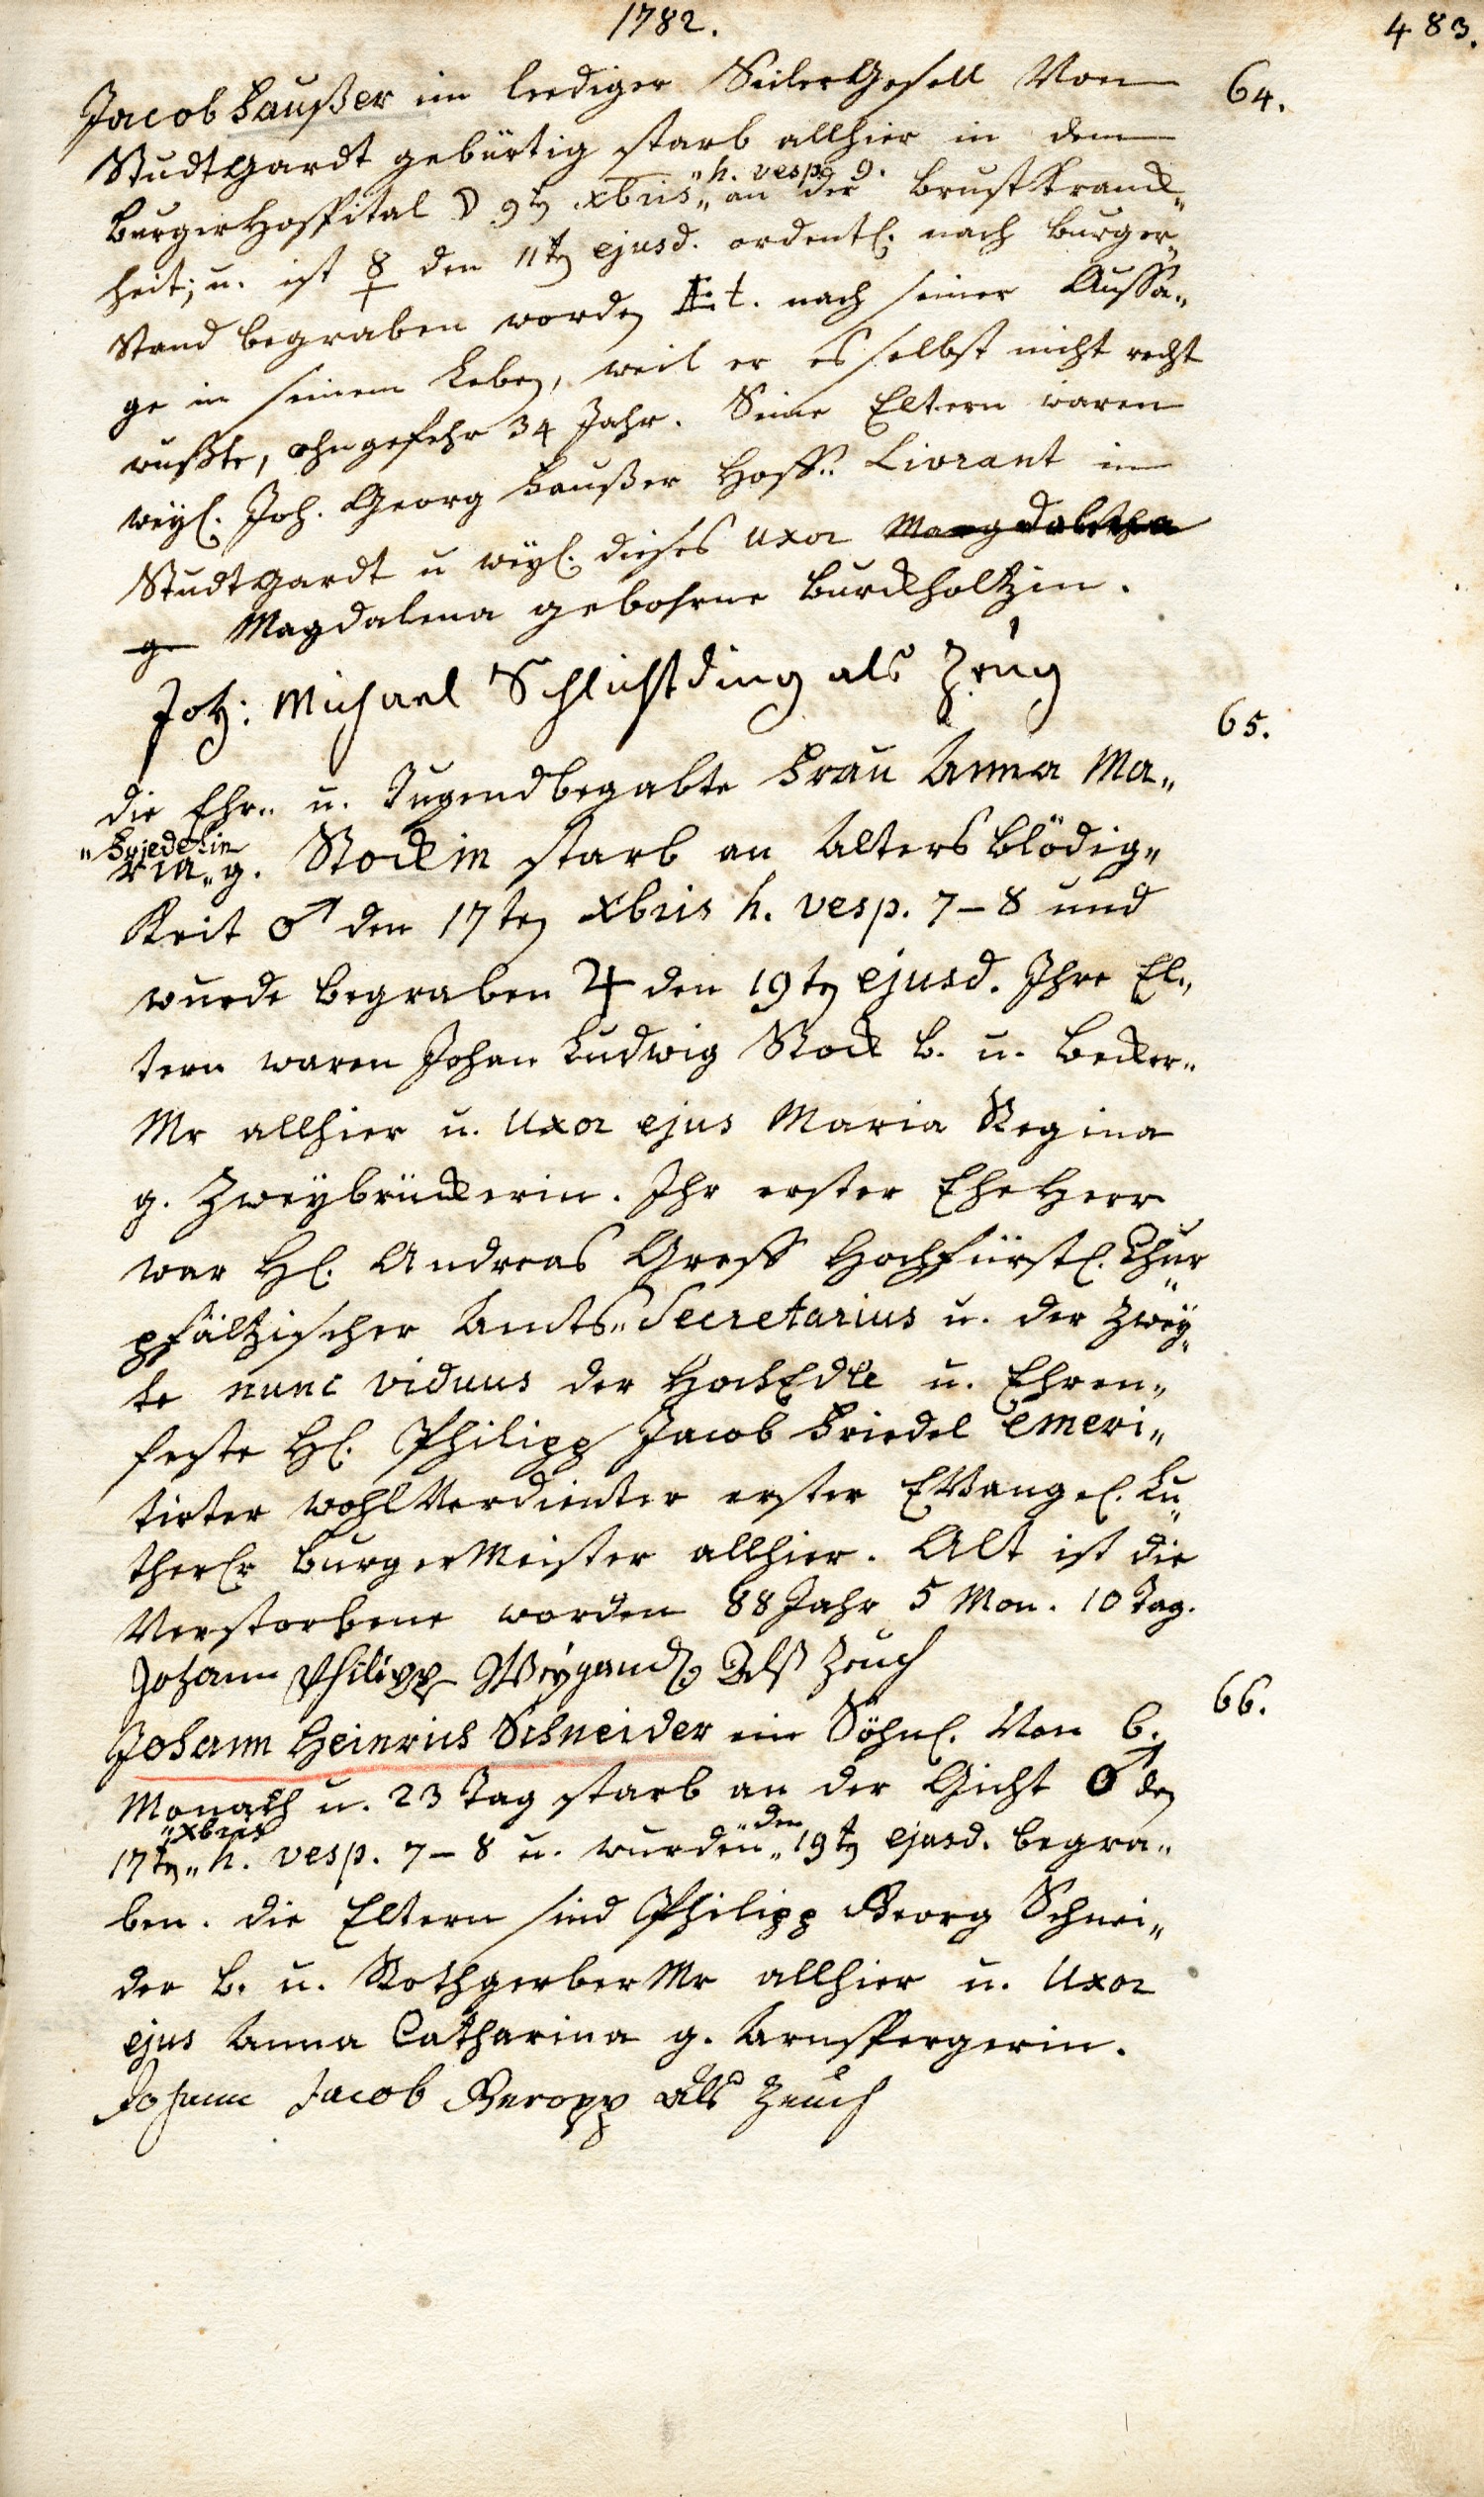 1782.
483.
64.
Jacob Haußer ein lediger Seiler Gesell Von
Studtgardt gebürtig starb allhier in dem
Burger Hospital ☽ 9ten xbris „h. vesp. 9.„ an der Brustkranck„
heit; u. ist ☿ den 11ten ejusd. ordentl. nach Burger„
Stand begraben worden Æt. nach seiner Aussa„
ge in seinem Leben, weil er es selbst nicht recht
wußte, ohngefehr 34 Jahr. Seine Eltern waren
weyl. Joh. Georg Haußer Hoff„ Livrant in
Studtgardt u weyl. dieses uxor
g Magdalena gebohrne Burckholtzin.
Joh: Michael Schlichtding als Zeug
65.
die Ehr„ u. Tugendbegabte Frau Anna Ma„
ria „Friedelin„ g. Stockin starb an Alters Blödig„
keit ♂ den 17ten xbris h. vesp. 7–8 und
wurde begraben ♃ den 19ten ejusd. Ihre El„
tern waren Johan Ludwig Stock B. u. Becker„
Mr allhier u. Uxor ejus Maria Regina
g. Zweybrückerin. Ihr erster Ehe Herr
war Hl. Andreas Greff Hochfürstl. Chur„
pfältzischer Amts„ Secretarius u. der Zwey„
te nunc viduus der HochEdle u. Ehren„
feste Hl. Philipp Jacob Friedel emeri„
tirter wohlVerdienter erster EVangel. Lu„
therl.r Burger Meister allhier. Alt ist die
Verstorbene worden 88 Jahr 5 Mon. 10 Tag.
Johann Philipp Weygand Alß Zeuch
66.
Johann Heinrich Schneider ein Söhnl. Von 6.
Monath u. 23 Tag starb an der Gicht ♂ den
17ten „xbris„ h. vesp. 7–8 u. wurde „den„ 19ten ejusd. begra„
ben. die Eltern sind Philipp Georg Schnei„
der B. u. Rothgerber Mr allhier u. Uxor
ejus Anna Catharina g. Arnspergerin.
Johann Jacob Geropp als Zeuch